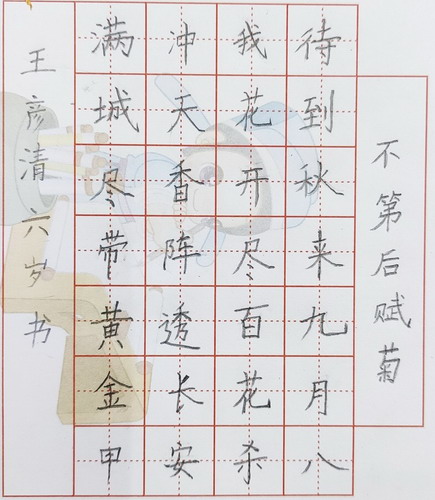 不第后赋菊
待到秋来九月八
我花开尽百花杀
冲天香阵透长安
满城尽带黄金甲
王彦清六岁书